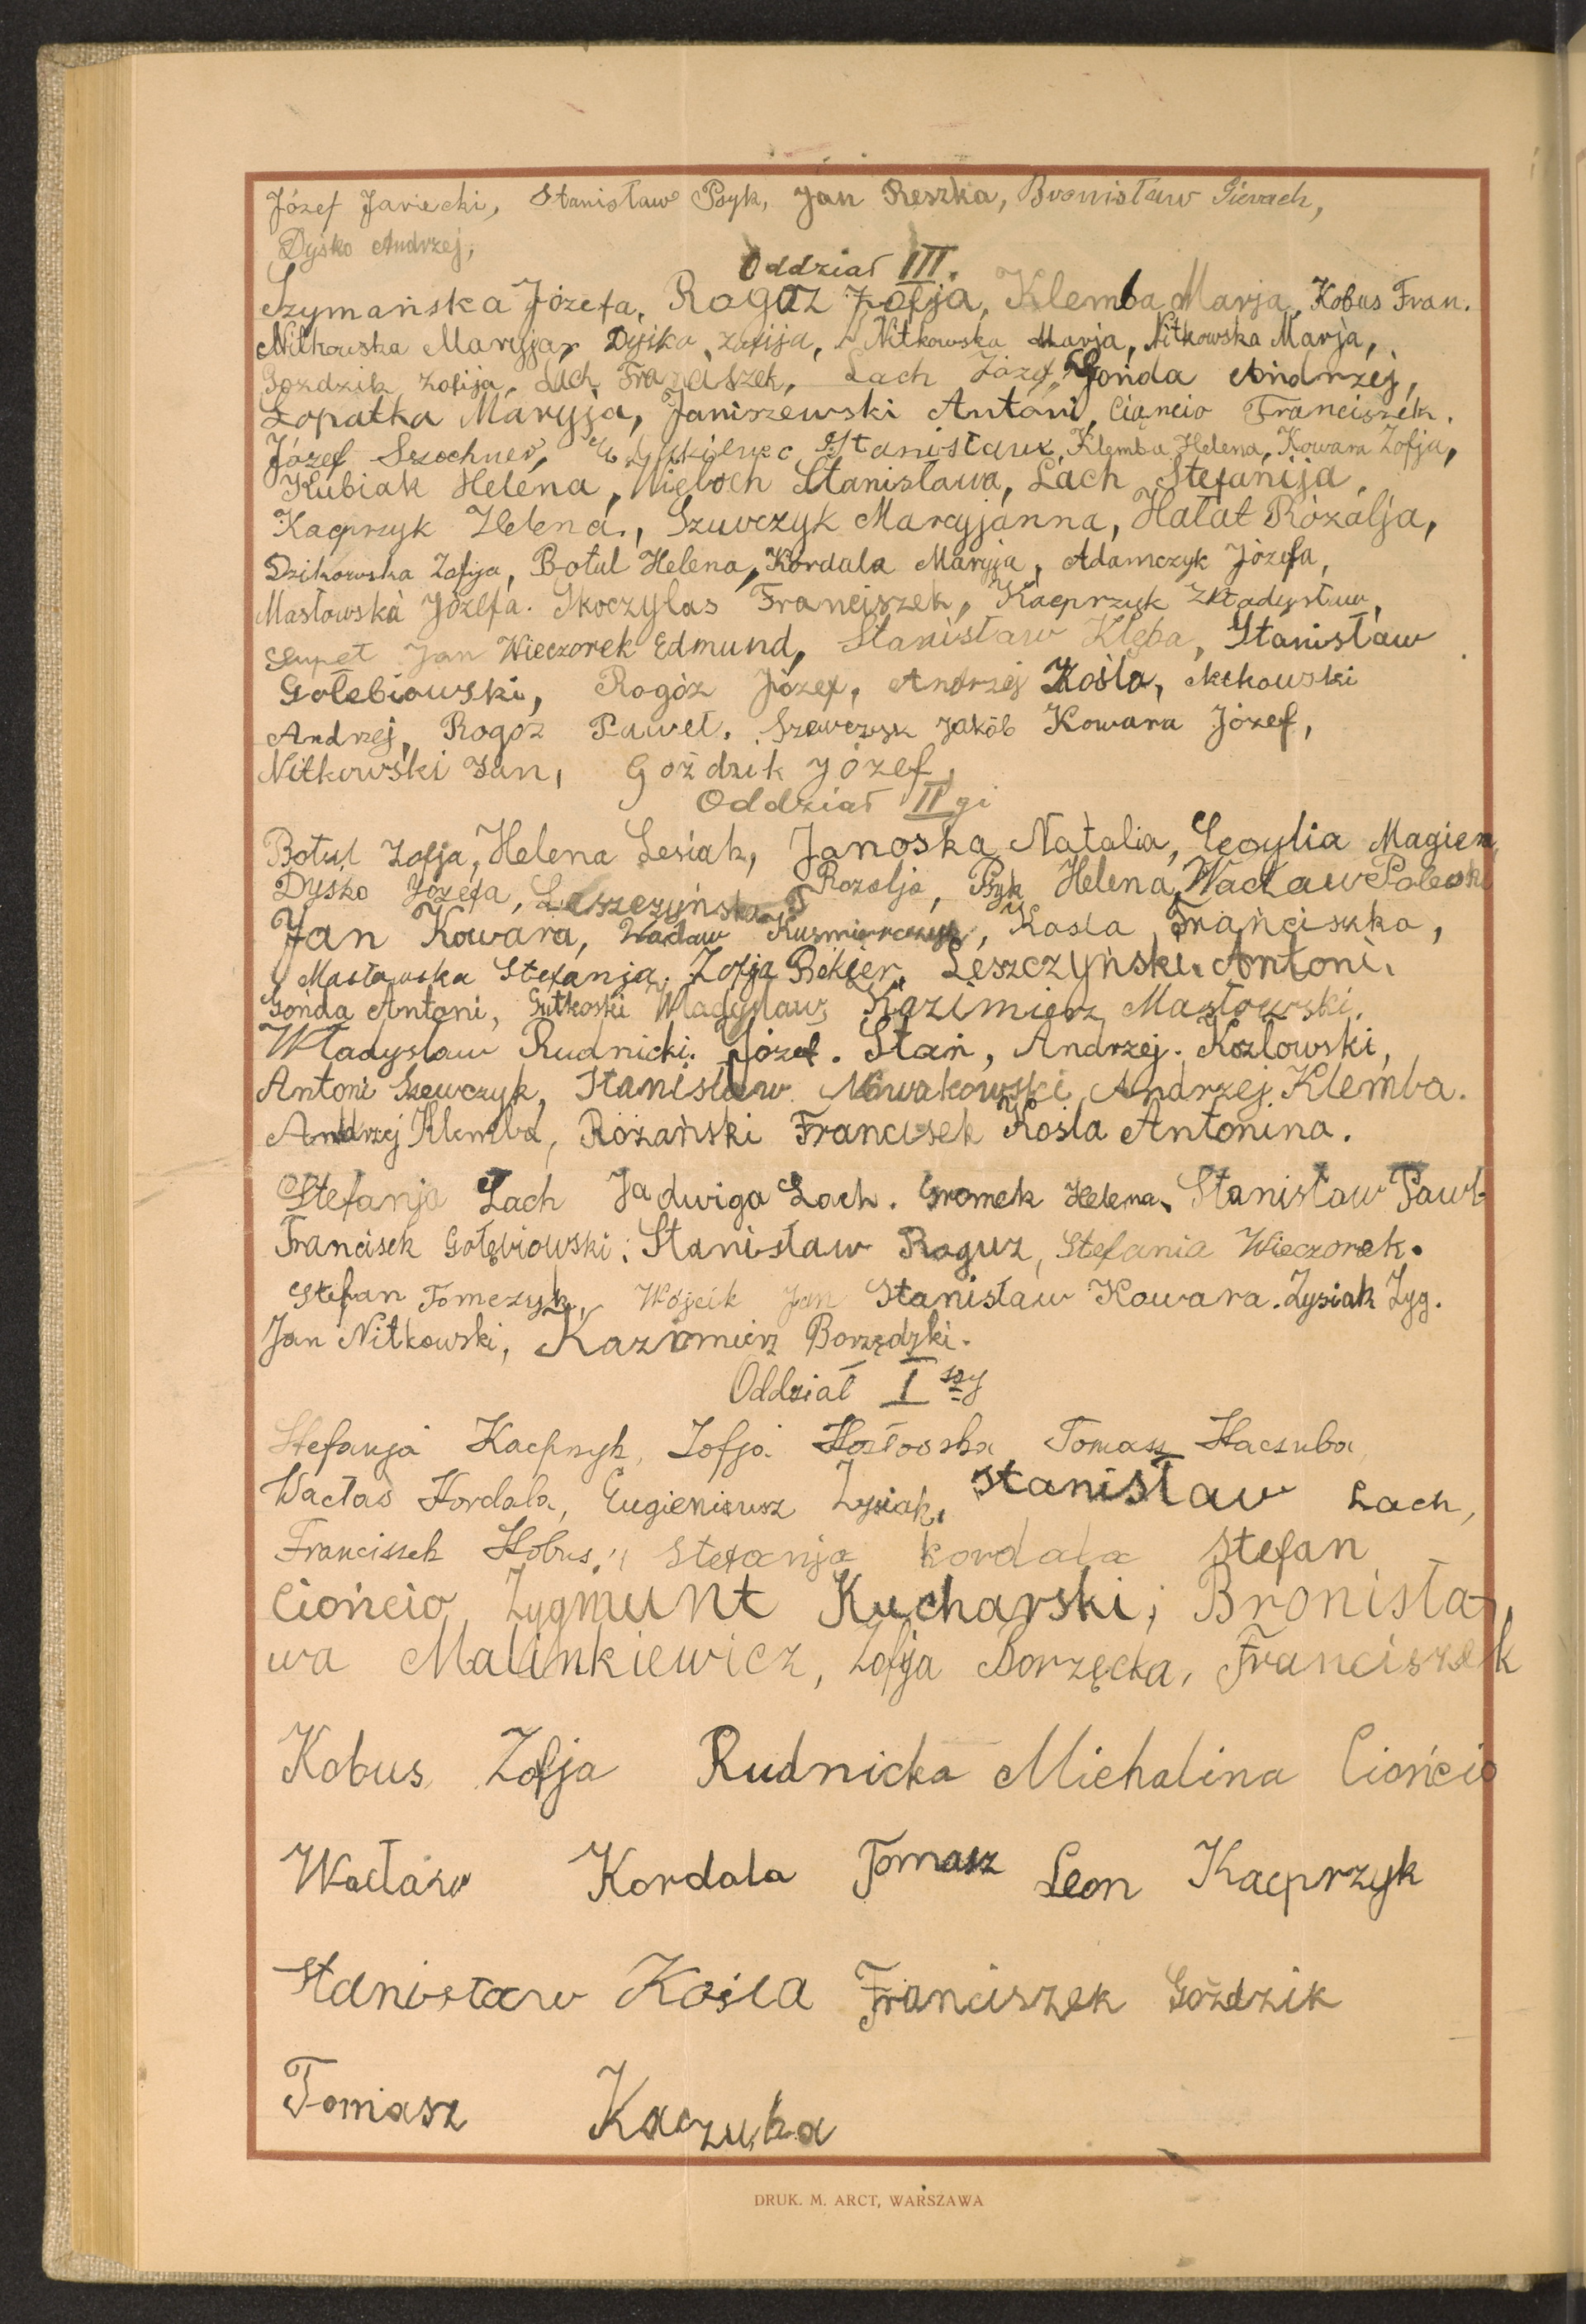 Józef Jaroecki, Stanisław Psyk, Jan Reszka, Bronisław
Dyśko Andrzej,
Oddział III.
Szymańska Józefa, Rogoz Zofja, Klemba Marja, Kobus Fran.
Nitkowska Maryja, Dyśko Zofija, Nitkowska Marja, Nitkowska Marja,
Gozdzik Zofija, Lach Franciszek, Lach Józef, Gońda Andrzej,
Łopatka Maryja, Janiszewski Antoni, Ciancio Franciszek.
Józef Stanisław, Klemba Helena, Kowara Zofja,
Kubiak Helena, Stanisława, Lach Stefanija,
Kacprzyk Helena, Szuwczyk Maryjanna, Hałat Rózalja,
Dzikowska Zofija, Botul Helena, Kordala Maryja, Adamczyk Józefa,
Masłowska Józefa. Skoczylas Franciszek, Kacprzyk
Jan Wieczorek Edmund, Stanisław Klęba, Stanisław
Gołebiowski, Rogóz Józef, Andrzej Kośla,
Andrzej, Rogoz Paweł. Szewczyk Jakób Kowara Józef,
Nitkowski Jan, Goździk Józef,
Oddział II gi
Botul Zofja, Helena Lesiak, Janoska Natalia, Cecylia Magiera
Dyśko Józefa, Leszczyńska Rozalja, Psyk Helena, Wacław
Jan Kowara, Wacław Kusmierczyk, Kosla Franciszka,
Masłowska Stefanja. Zofja Bekier, Leszczyński Antoni.
Gońda Antoni, Gutkoski Władysław, Kazimierz Masłowski.
Władysław Rudnicki. Józef. Stań, Andrzej. Kozlowski,
Antoni Szewczyk, Stanisław Nowakowski Andrzej Klemba.
Andrzej Klemba, Rożański Francisek Kośla Antonina.
Stefanja Lach Jadwiga Lach. Gromek Helena, Stanisław Pawł
Francisek Gołębiowski, Stanisław Roguz, Stefania Wieczorek.
Stefan Tomczyk, Wójcik Jan Stanisław Kowara. Zysiak Zyg.
Jan Nitkowski, Kazimierz Borzędzki.
Oddział I szy
Stefanja Kacprzyk, Zofja Kozłoska Tomasz Kaczuba,
Wacłas Kordala, Eugieniusz Zysiak, Stanisław Lach,
Franciszek Kobus, Stefanja kordala Stefan
Ciońcio, Zygmunt Kucharski; Bronisła-
wa Malinkiewicz, Zofja Borzęcka, Franciszek
Kobus Zofja Rudnicka Michalina Ciońcio
Wacław Kordala Tomasz Leon Kacprzyk
Stanisław Kośla Franciszek Goździk
Tomasz Kaczuba
DRUK. M. ARCT, WARSZAWA